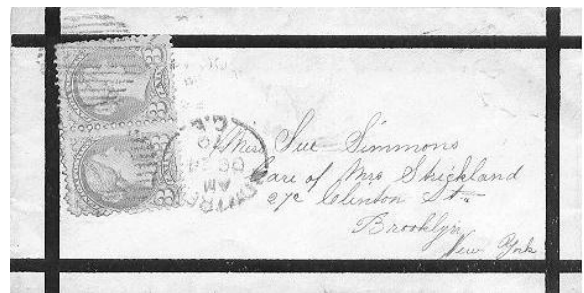 Miss Sue Simmons
Care of Mrs Strickland
27c Clinton St.
Brooklyn
New York
AM